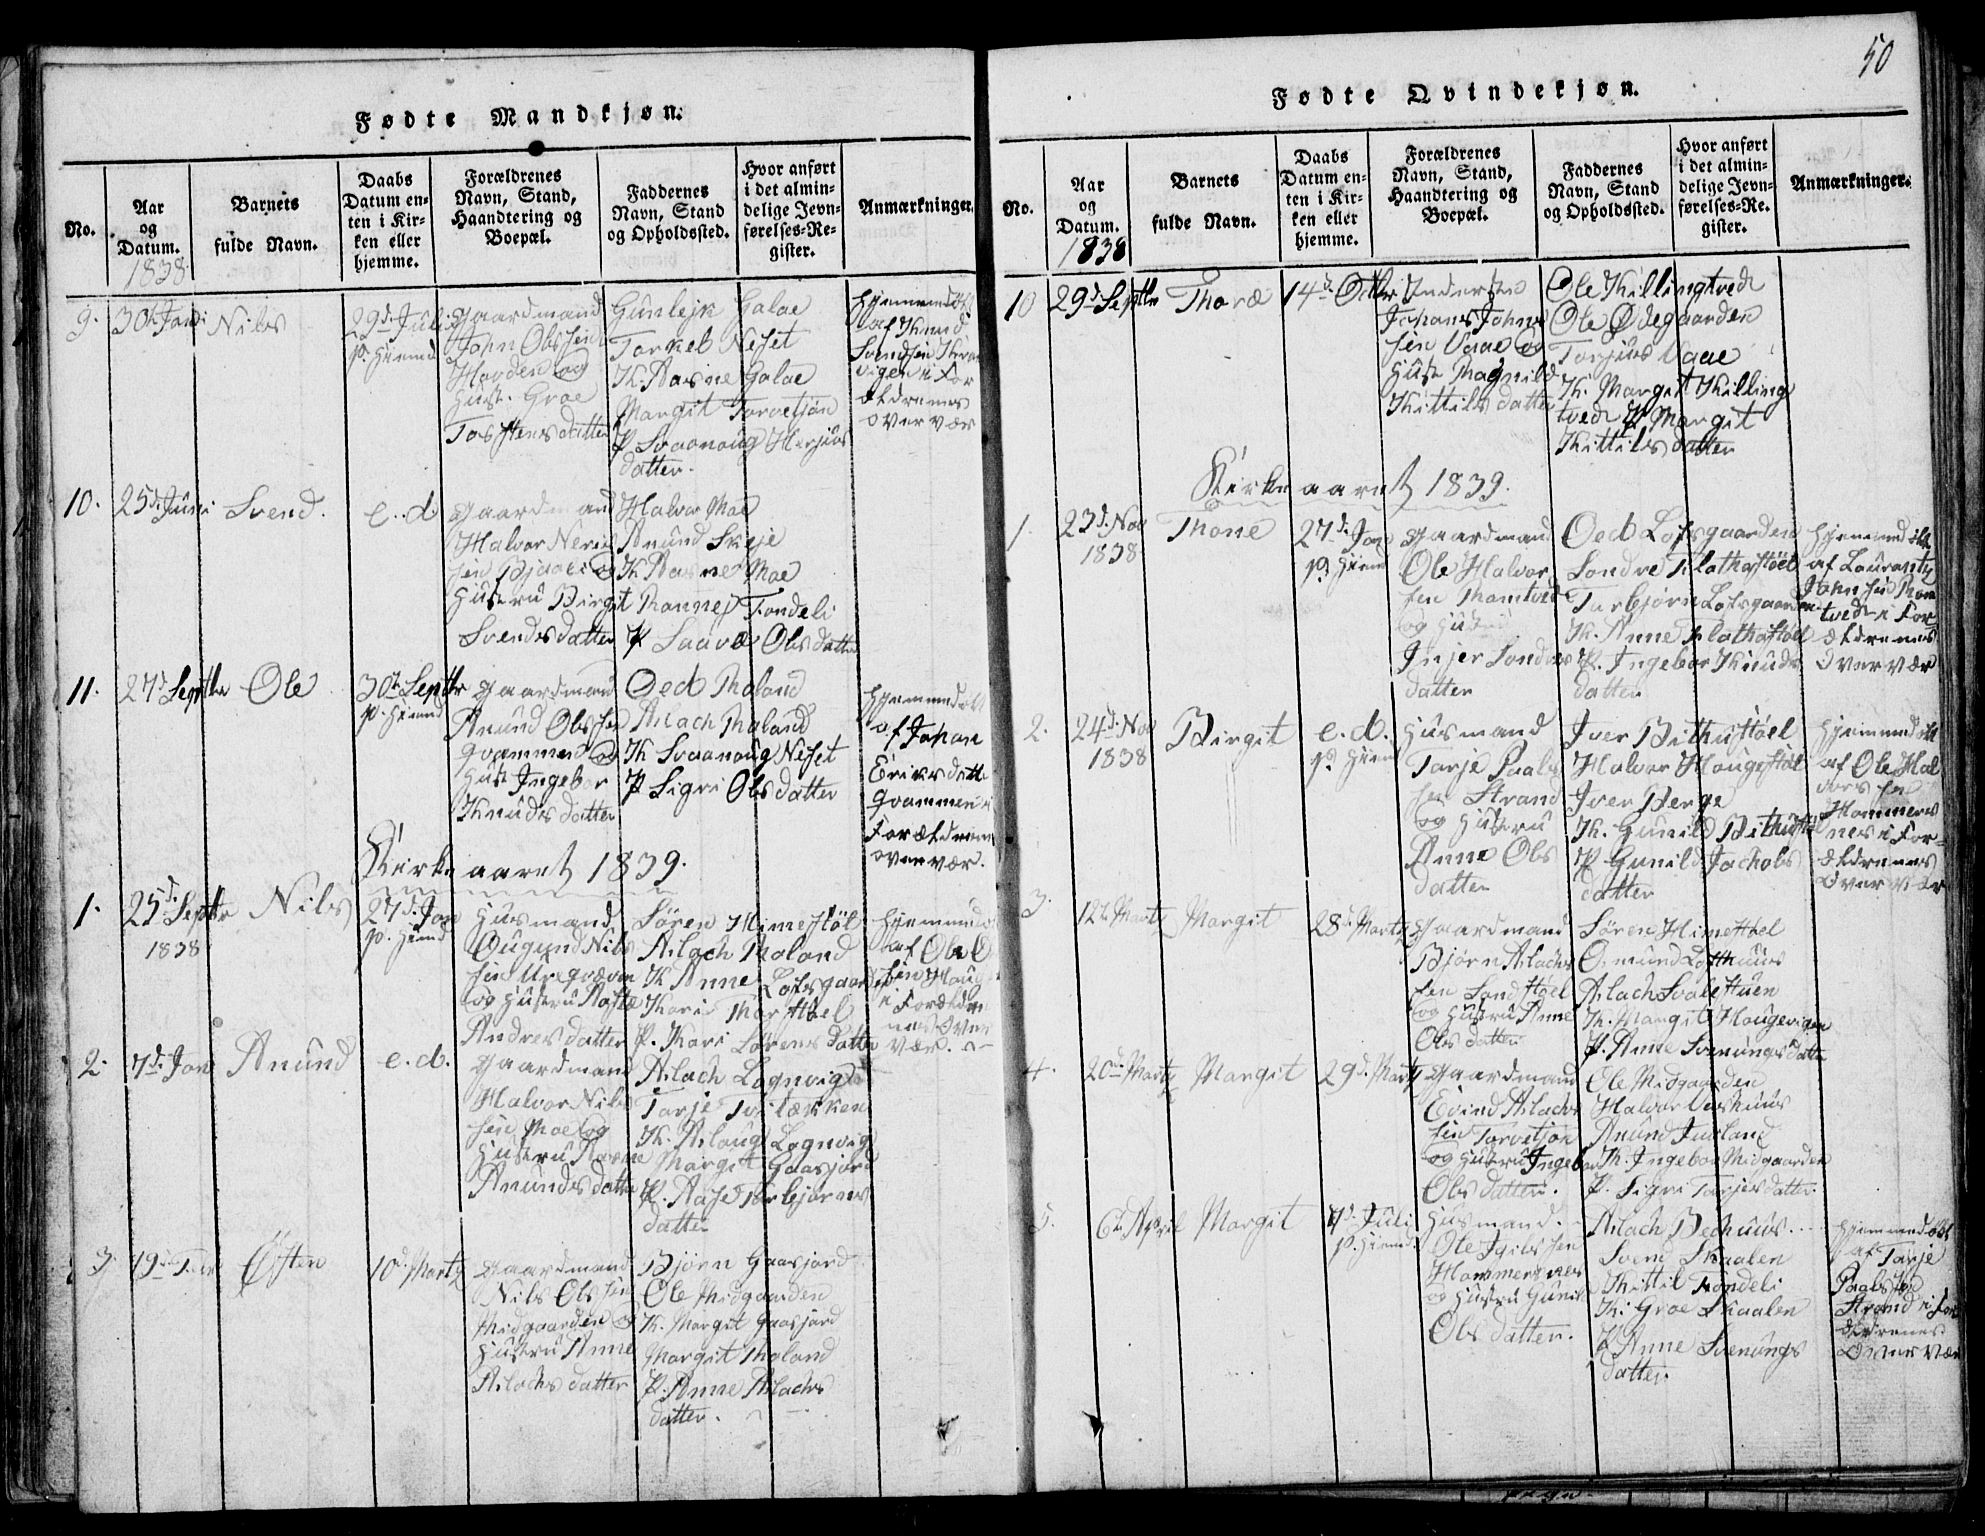 Fødte Mandkjøn.
No.
Aar
og
Datum.
1838
Barnets
fulde Navn.
Daabs
Datum en-
ten i Kir-
ken eller
hjemme.
Forældrenes
Navn, Stand,
Haandtering og
Boepæl.
Faddernes
Navn, Stand
og Opholdssted.
Hvor anført
i det almin-
delige Jevn-
førelses-Re-
gister.
Anmærkninger.
9.
Nils
29d Juli
p. Hiemd
Gaardmand
John Olssen
Havden og
Hust. Groe
Tostensdatter
Gunlejk Galae
Torkel Neset
K. Aasne Galae
Margit Torvetjøn
P Svaanoug Herjuus
datter.
Hjemmedøbt
af Knud
Svendsen
vigen i For
ældrenes
overvær
10.
25d Juni
Svend.
e. d.
Gaardmand
Halvor Neri
sen Bjaali og
Hustru Birgit
Svendsdatter
Halvor Moe
Anund Skeje
K Aasne Moe
Rannej Tondeli
P Saave Olsdatter
11.
27d Septbr
Ole
30t Septbr
p. Hiemd
Gaardmand
Anund Olssen
Qvammen og
Hust Ingebor
Knudsdatter
Oed Moland
Aslach Moland
K Svaanoug Neset
P Sigri Olsdatter
Hjemmedøbt
af Johan
Qvammen i
Forældrenes
overvær.
Kirkeaaret 1839.
1.
25d Septbr
1838
Nils
27d Jan
p. Hiemd
Husmand
Ougund Nils
sen Uregræven
og Hustru Aaste
Andresdatter
Søren Himestøl
Aslach Moland
K Anne Loftsgaarden
Kari
P. Kari Sørensdatter
Hjemmedøbt
af Ole O
sen Haug
i Forældre
nes Over
vær.
2.
7d Jan
Anund
e. d.
Gaardmand
Halvor Nils
sen Moe og
Hustru Aasne
Anundsdatter
Aslach Lognvig
Tarje Tvilækken
K. Aslaug Lognvig
Margit Gaasjord
P. Aase Torbjørns
datter
3.
Østen
10d Martz
Gaardmand
Nils Olssen
Midgaarden og
Hustru Anne
Aslachsdatter
Bjørn Gaasjord
Ole Midgaarden
K. Margit Gaasjord
Margit Moland
P. Anne Aslachs
datter.
50
Fødte Qvindekjøn.
No.
Aar
og
Datum.
1838
Barnets
fulde Navn.
Daabs
Datum en-
ten i Kir-
ken eller
hjemme.
Forældrenes
Navn, Stand,
Haandtering og
Boepæl.
Faddernes
Navn, Stand
og Opholdssted.
Hvor anført
i det almin-
delige Jevn-
førelses-Re-
gister.
Anmærkninger.
10
29d Septbr
Thoræ
14d Octbr
Inderster
Johans Johns
sen Vaae og
Hust Magnild
Kittilsdatter
Ole Killingtvedt
Ole Ødegaarden
Torjuus Vaae
K. Margit Killing
tvedt P Margit
Kittilsdatter
Kirkeaaret 1839.
1.
23d Nov
1838
Thone
27d Jan
p. Hiemd
Gaardmand
Ole Halvor
sen Romtvedt
og Hustru
Injer Sondres
datter
Oed Loftsgaarden
Sondre Klathastøel
Torbjørn Loftsgaarden
K. Anne Klathastøel
P. Ingebor Knuds
datter
Hjemmedøbt
af Laurantz
Johnsen Rom
tvedt i For
ældrenes
Overvær
2.
24d Nov
1838
Birgit
e. d.
p. Hiemd
Husmand
Tarje Paals
sen Strand
og Hustru
Anne Ols
datter
Iver Bithustøel
Halvor Haugestøel
Iver Berge
K. Gunild Bithustøel
P Gunild Jachobs
datter
Hjemmedøbt
af Ole Hal
vorssen
Hammers
nes i For-
ældrenes
Overvær
3.
12te Martz
Margit
28d Martz
Gaardmand
Bjørn Aslachs
sen Sandstøel
og Hustru Anne
Olsdatter
Søren Himestøel
Osmund Lofthuus
Aslach Svalestuen
K. Margit Haugevigen
P. Anne Svenungsdatter
4.
20de Martz
Margit
29d Martz
Gaardmand
Evind Aslachs
sen Torvetjøn
og Hustru Ingebor
Olsdatter.
Ole Midgaarden
Halvor Vashuus
Anund Juvland
K. Ingebor Midgaarden
P. Sigri Tarjesdatter
5.
6te April
Margit
7d Juli
p. Hiemd
Husmand
Ole Igilssen
Hammersnes
og Hustru Gunild
Olsdatter.
Aslach Bechuus
Svend Skaalen
Kittil Tondeli
K. Groe Skaalen
P Anne Svenungs
datter.
Hjemmedøbt
af Tarje
Paalssen
Strand i For
ældrenes
Overvær